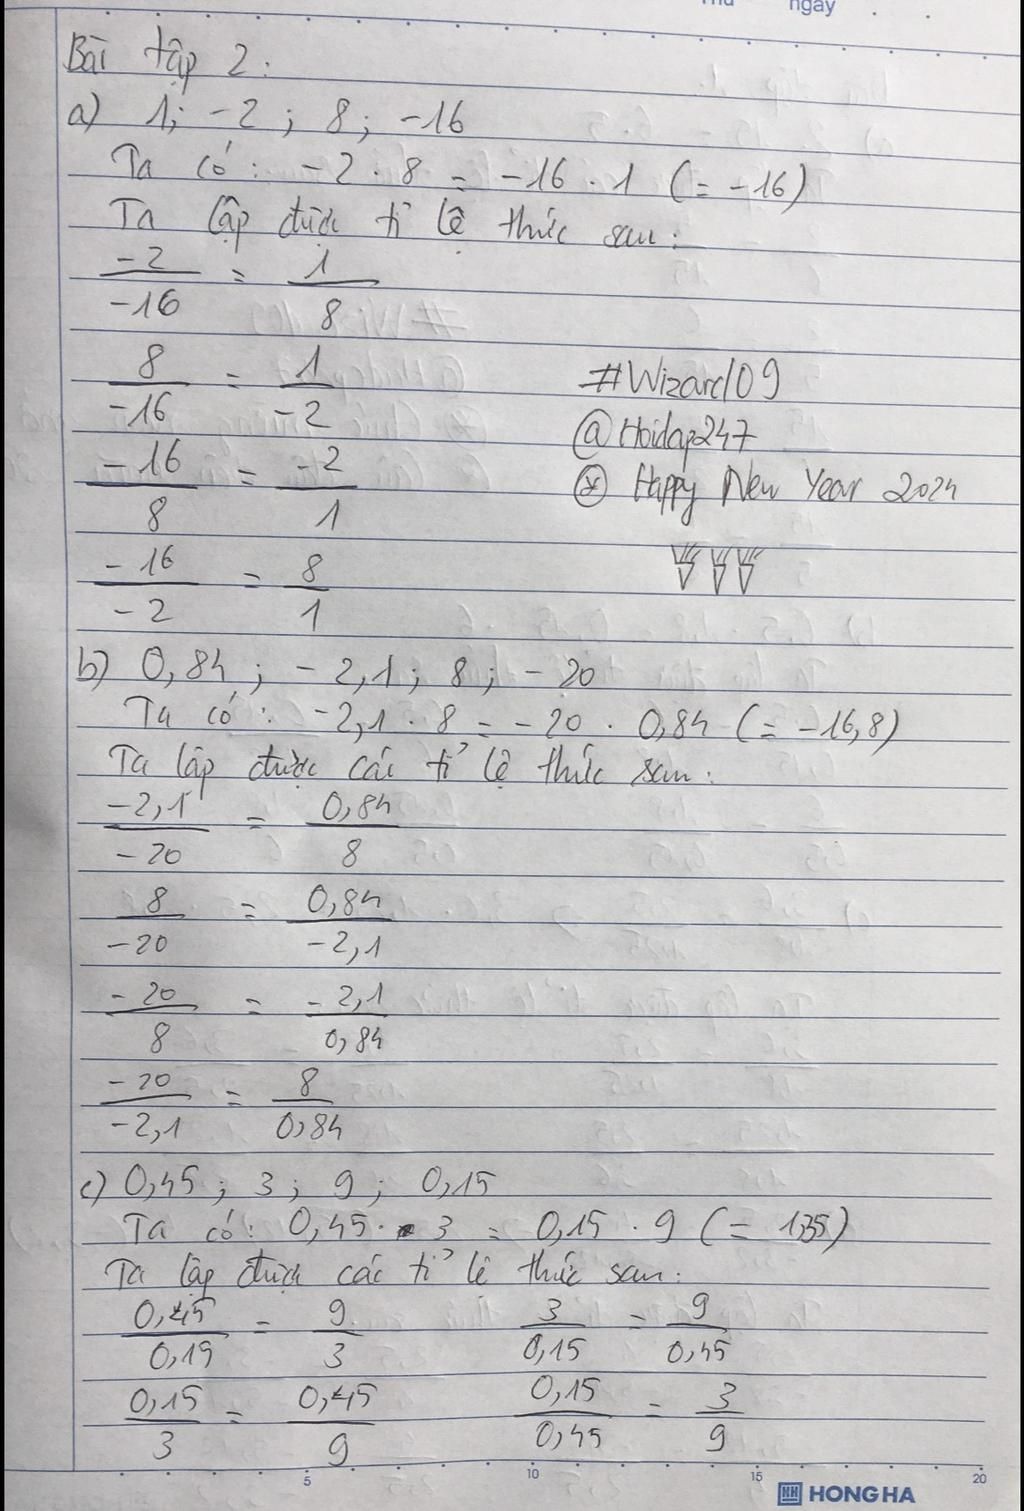 ngày
Bài tập 2:
a) 1; -2; 8; -16
Ta có: -2 . 8 = -16 . 1 (= -16)
Ta lập được tỉ lệ thức sau:
-2/-16 = 1/8
8/-16 = 1/-2
#Wizard09
-16/8 = -2/1
@Hoidap247
Happy New Year 2024
-16/-2 = 8/1
b) 0,84; -2,1; 8; -20
Ta có: -2,1 . 8 = -20 . 0,84 (= -16,8)
Ta lập được các tỉ lệ thức sau:
-2,1/-20 = 0,84/8
8/-20 = 0,84/-2,1
-20/8 = -2,1/0,84
-20/-2,1 = 8/0,84
c) 0,45; 3; 9; 0,15
Ta có: 0,45 . 3 = 0,15 . 9 (= 1,35)
Ta lập được các tỉ lệ thức sau:
0,45/0,15 = 9/3 3/0,15 = 9/0,45
0,15/3 = 0,45/9 0,15/0,45 = 3/9
5 10 15 20
HH HONG HA